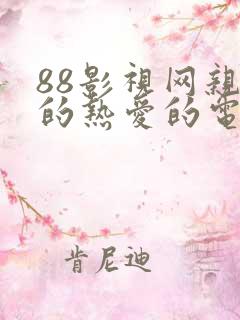 88影视网親
的热爱的電
肯尼迪